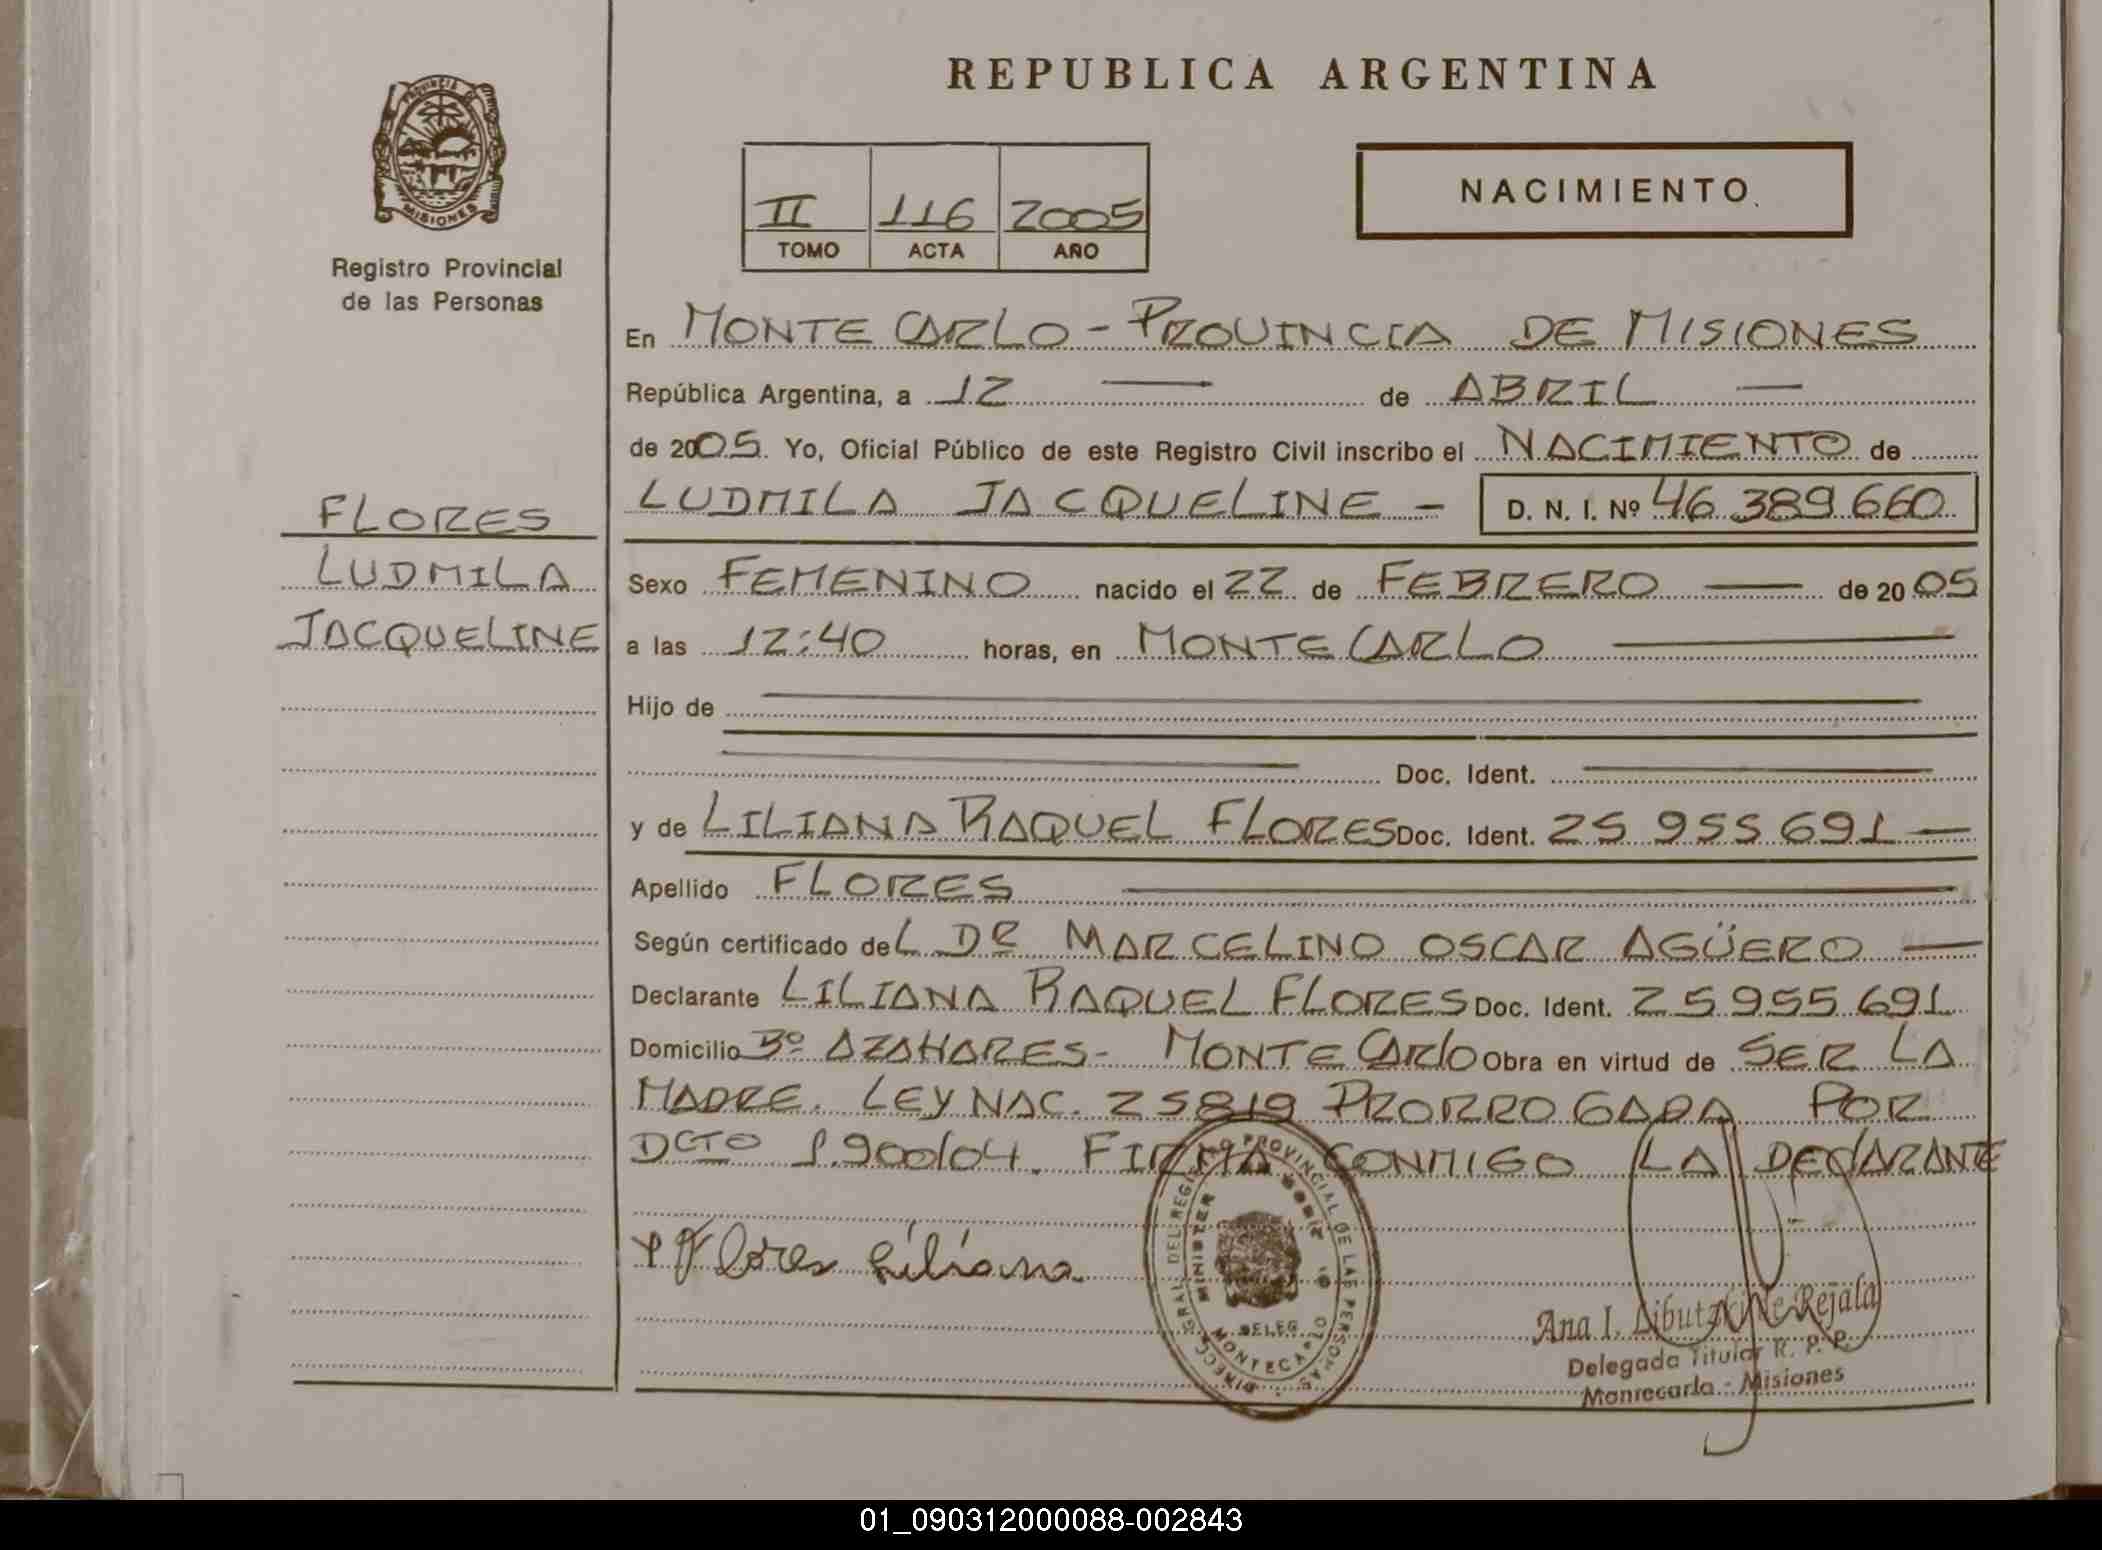 REPUBLICA ARGENTINA
PROVINCIA DE
MISIONES
Registro Provincial
de las Personas
II 116 2005
TOMO ACTA AÑO
NACIMIENTO
En MONTE CARLO - PROVINCIA DE MISIONES
República Argentina, a 12 — de ABRIL —
de 2005. Yo, Oficial Público de este Registro Civil inscribo el NACIMIENTO de
LUDMILA JACQUELINE - D. N. I. Nº 46.389.660
FLORES
LUDMILA
JACQUELINE
Sexo FEMENINO nacido el 22 de FEBRERO — de 2005
a las 12:40 horas, en MONTE CARLO —
Hijo de —
— Doc. Ident. —
y de LILIANA RAQUEL FLORES Doc. Ident. 25.955.691 —
Apellido FLORES —
Según certificado del DR MARCELINO OSCAR AGÜERO —
Declarante LILIANA RAQUEL FLORES Doc. Ident. 25.955.691
Domicilio Bº AZAHARES - MONTE CARLO Obra en virtud de SER LA
MADRE. LEY NAC. 25819 PRORROGADA POR
DCTO 1.900/04. FIRMA CONMIGO LA DECLARANTE
Flores Liliana
DIRECC. GRAL. DEL REGISTRO PROVINCIAL DE LAS PERSONAS
MINISTER
DELEG.
MONTECARLO
Ana I. Rejala
Delegada Titular R. P. P.
Montecarlo - Misiones
01_090312000088-002843